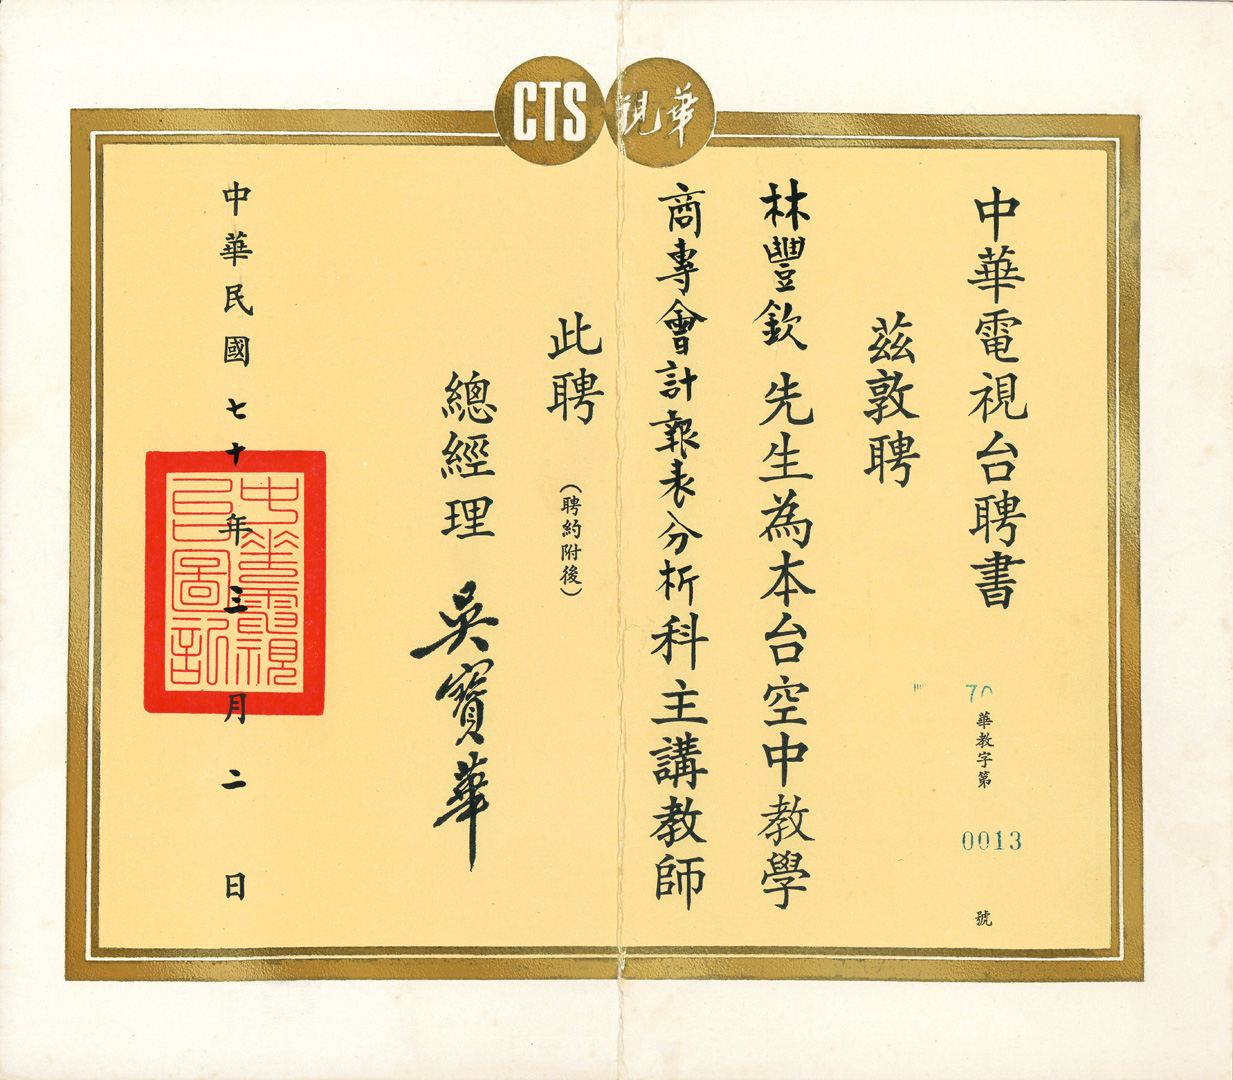 CTS 華視
中華電視台聘書
70華教字第0013號
茲敦聘
林豐欽先生為本台空中教學
商專會計報表分析科主講教師
此聘
(聘約附後)
總經理 吳寶華
中華民國七十年三月二日
中華電視
台圖記